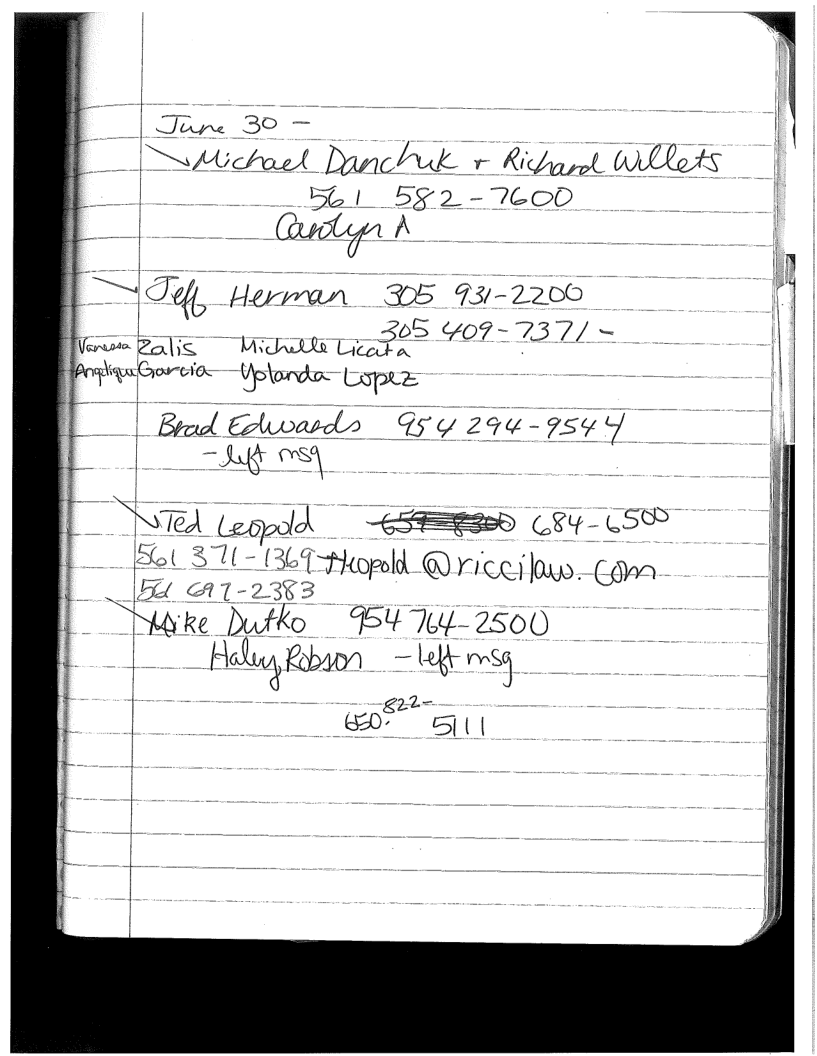 June 30 -
Michael Danchuk + Richard Willets
561 582-7600
Carolyn A
Jeff Herman 305 931-2200
305 409-7371 -
Vanessa Zalis Michelle Licata
Angelique Garcia Yolanda Lopez
Brad Edwards 954 294-9544
- left msg
Ted Leopold 659-8300 684-6500
561 371-1369 tleopold@riccilaw.com
561 697-2383
Mike Dutko 954 764-2500
Haley Robson - left msg
822-
650. 5111